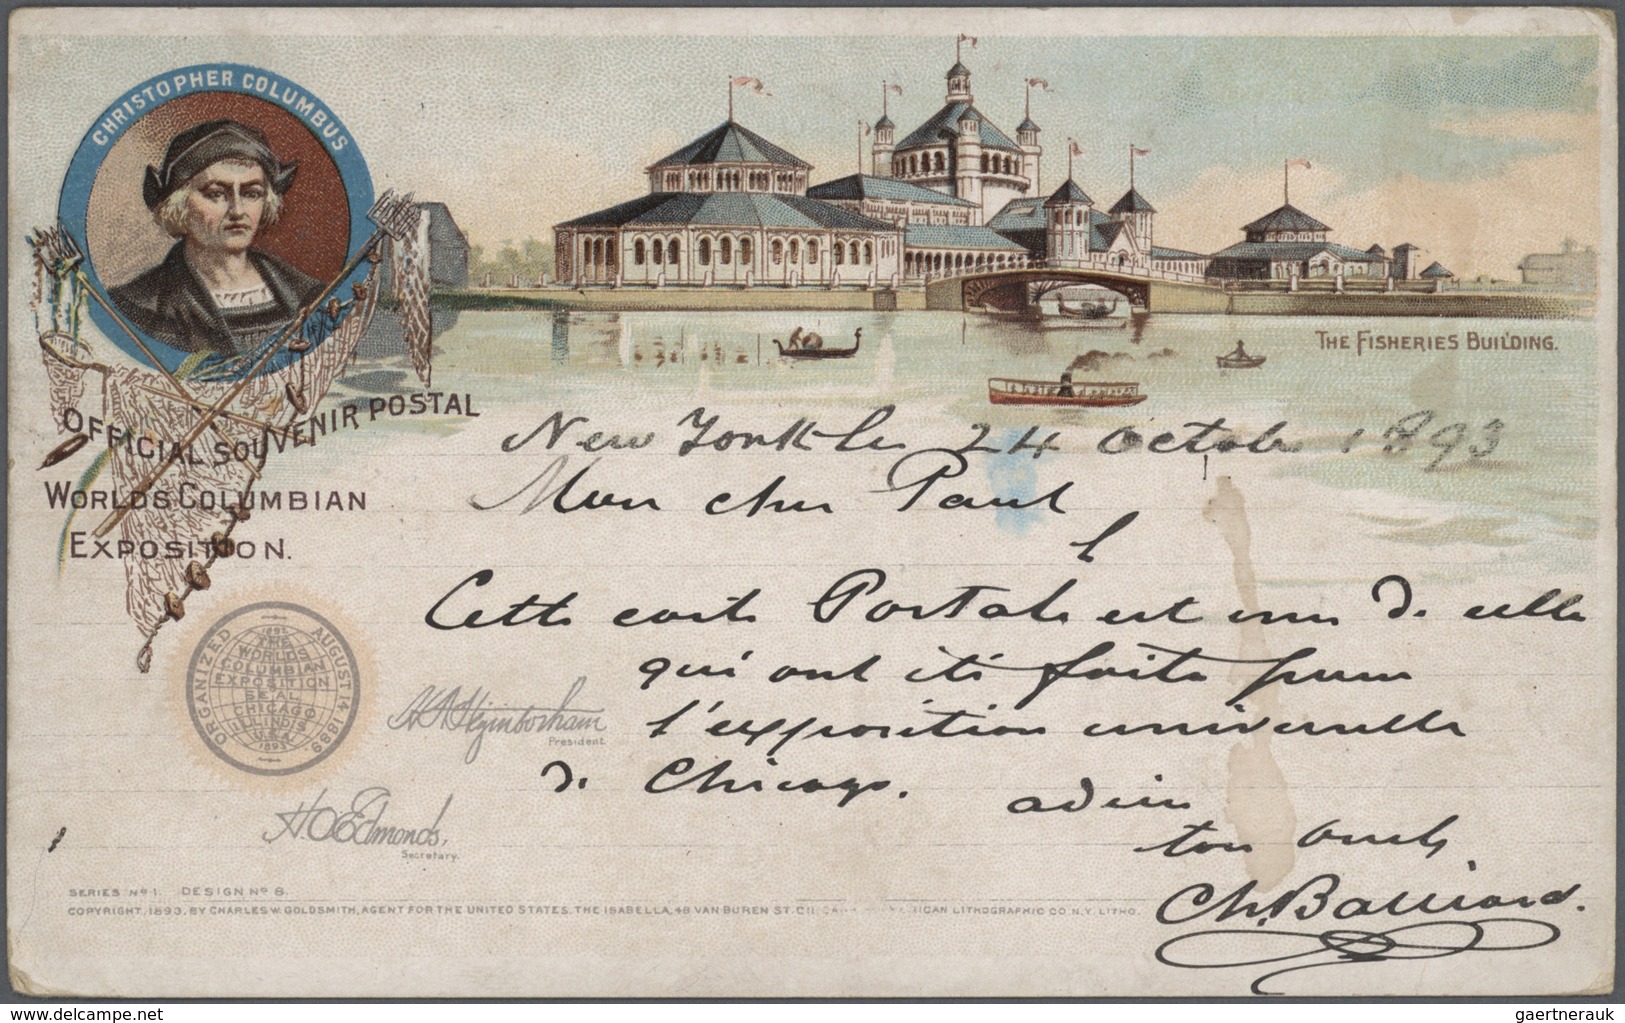 CHRISTOPHER COLUMBUS
THE FISHERIES BUILDING.
OFFICIAL SOUVENIR POSTAL
WORLDS COLUMBIAN
EXPOSITION.
New York le 24 Octobre 1893
Mon cher Paul
Cette carte Postale est une de celle
qui ont été faite pour
l'exposition universelle
de Chicago. adieu
ton oncle
Ch. Balliard.
ORGANIZED AUGUST 14 1889
1492
THE
WORLDS
COLUMBIAN
EXPOSITION
SEAL
CHICAGO
ILLINOIS
U.S.A.
1893
H N Higinbotham
President.
H O Edmonds,
Secretary.
SERIES No 1. DESIGN No 6.
COPYRIGHT, 1893, BY CHARLES W. GOLDSMITH, AGENT FOR THE UNITED STATES. THE ISABELLA, 48 VAN BUREN ST. LITHOGRAPHIC CO. N.Y. LITHO.
www.ma-shops.com
gaertnerauk